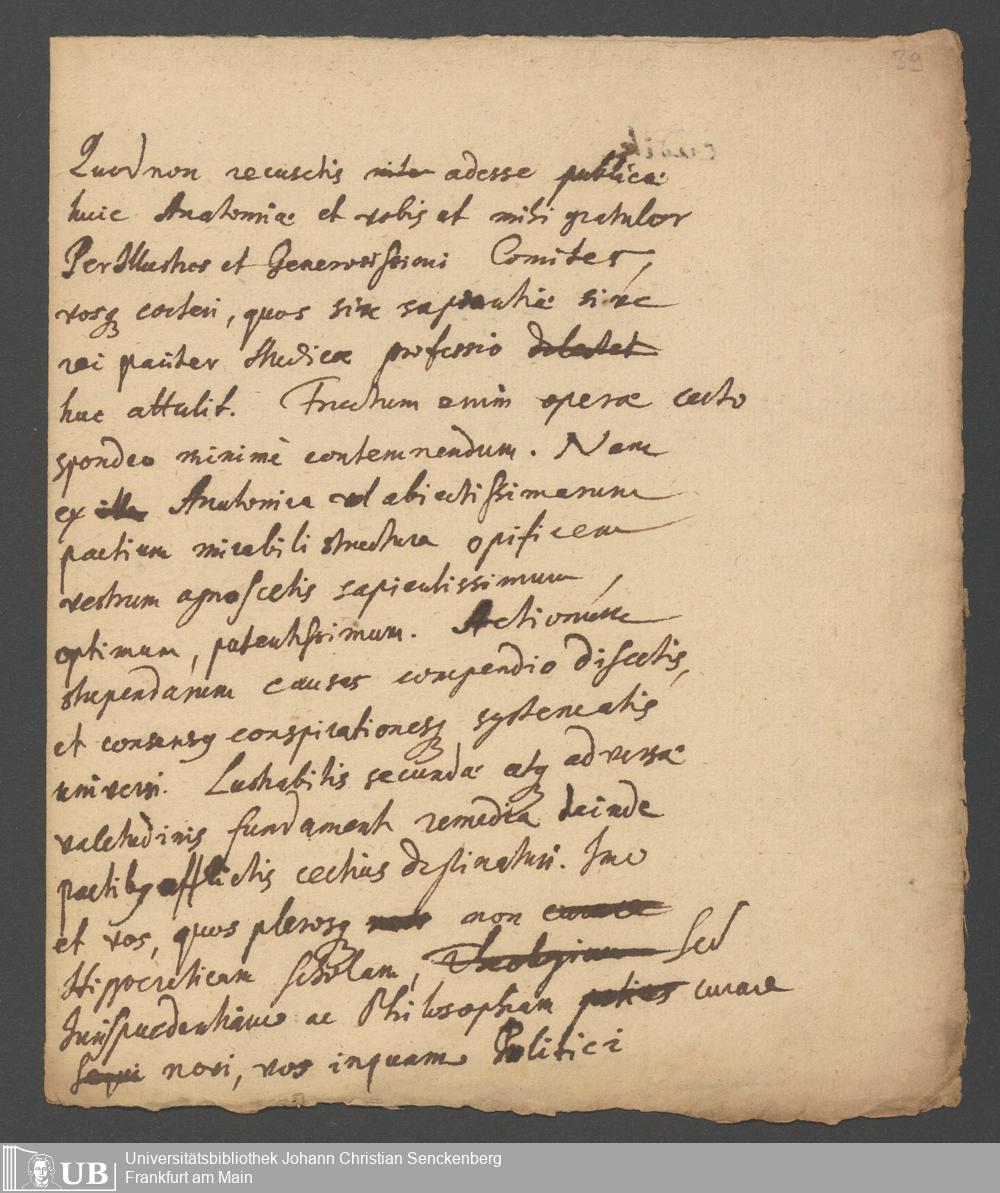 39
Quod non recusetis adesse publicae
huic Anatomiae et vobis et mihi gratulor
Perillustres et Generosissimi Comites,
vosq caeteri, quos sive sapientiae sive
rei pariter Medicae professio
huc attulit. Fructum enim operae certo
spondeo minimè contemnendum. Nam
ex Anatomica vel abiectissimarum
partium mirabili structura opificem
vestrum agnoscetis sapientissimum,
optimum, potentissimum. Actionum
stupendarum causas compendio discetis,
et consensq conspirationesq systematis
universi. Lustrabitis secundae atq adversae
valetudinis fundament remedia deinde
partibq afflictis certius destinaturi. Imo
et vos, quos plerosq non curare
Hippocraticam scholam, sed
Jurisprudentiam ac Philosophiam potius curare
sequi novi, vos inquam Politici
UB Universitätsbibliothek Johann Christian Senckenberg
Frankfurt am Main